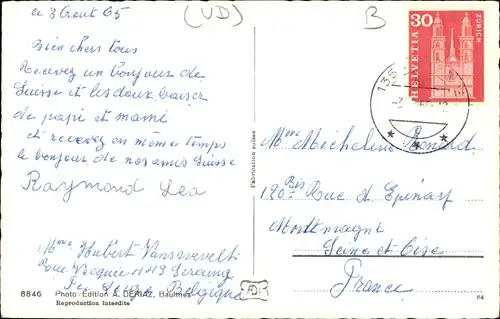 ce 3 Aout 65
(VD)
B
Bien chers tous
Recevez un bonjour de
Suisse et les doux baiser
de papi et mami
et recevez en même temps
le bonjour de nos amis Suisse
Raymond Lea
Mme Hubert
Rue 149 Seraing
Belgique
8846 Photo-Edition A. DERIAZ, Baulmes
Reproduction interdite
Fabrication suisse
30
HELVETIA
ZÜRICH
Mme Micheline
120 Bis Rue d'Epinay
Montmagny
Seine et Oise
France
64